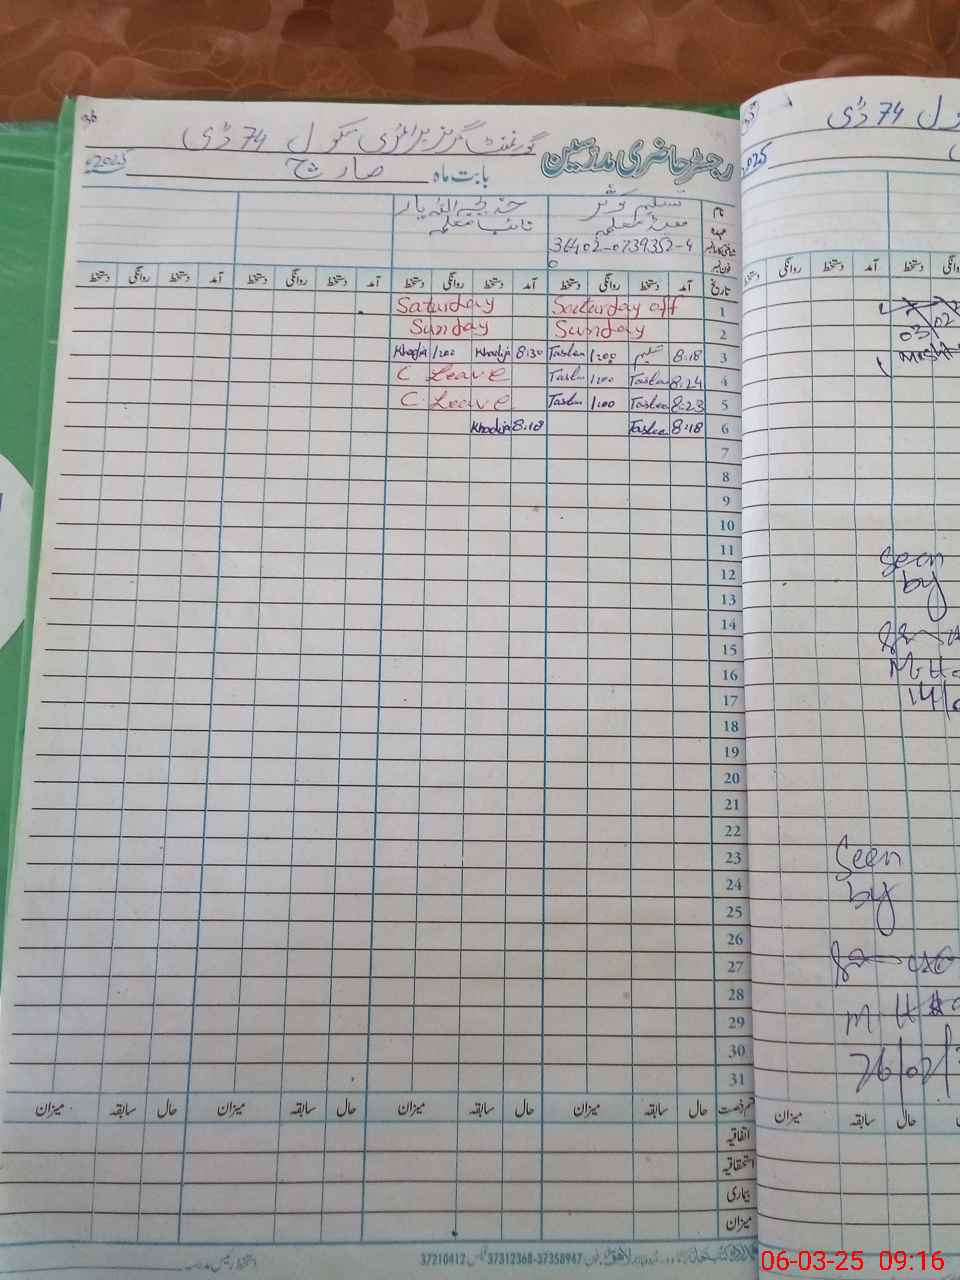 رجسٹر حاضری مدرسین گورنمنٹ گرلز پرائمری سکول 74 ڈی
بابت ماہ مارچ 2025
نام تسلیم کوثر خدیجہ اللہ یار
عہدہ معلمہ نائب معلمہ
36402-0739352-4
فون نمبر 0
تاریخ آمد دستخط روانگی دستخط آمد دستخط روانگی دستخط آمد دستخط روانگی دستخط آمد دستخط روانگی دستخط
1 Saturday off Saturday
2 Sunday Sunday
3 8:18 تسلیم 1:00 Taslim 8:30 Khadija 1:00 Khadija
4 8:24 Taslim 1:00 Taslim C Leave
5 8:23 Taslim 1:00 Taslim C. Leave
6 8:18 Taslim 8:18 Khadija
7
8
9
10
11
12
13
14
15
16
17
18
19
20
21
22
23
24
25
26
27
28
29
30
31
قسم رخصت حال سابقہ میزان حال سابقہ میزان حال سابقہ میزان حال سابقہ میزان
اتفاقیہ
استحقاقیہ
بیماری
میزان
37358967-37312368 37210412
دستخط رئیس مدرسہ
74 ڈی
2025
آمد دستخط روانگی دستخط
03 02
Seen
by
14
Seen
by
26/02/
حال سابقہ میزان
06-03-25 09:16